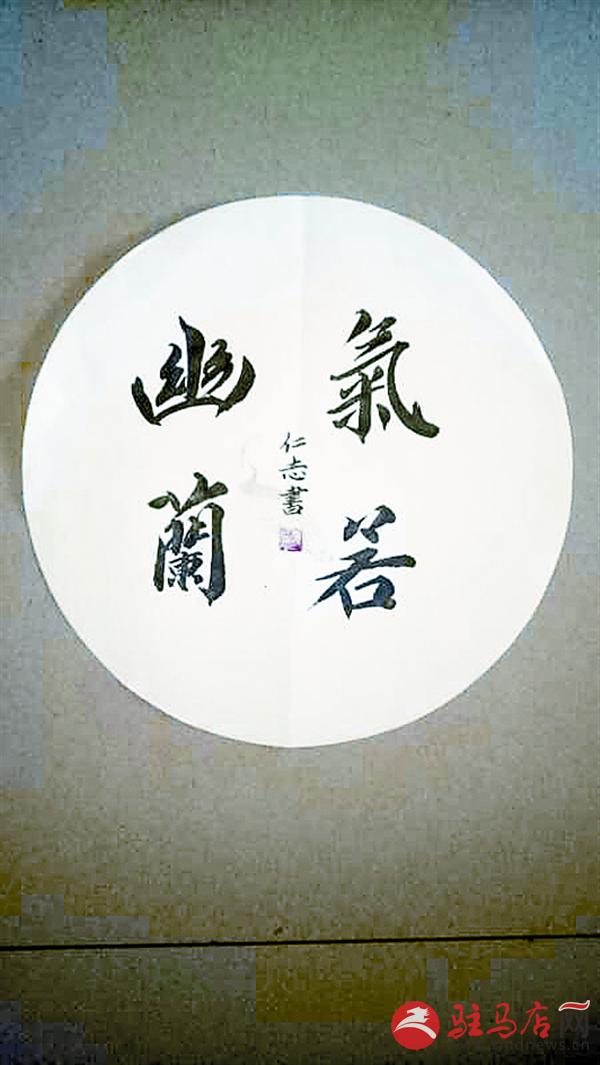 氣若
幽蘭
仁志書
驻马店网